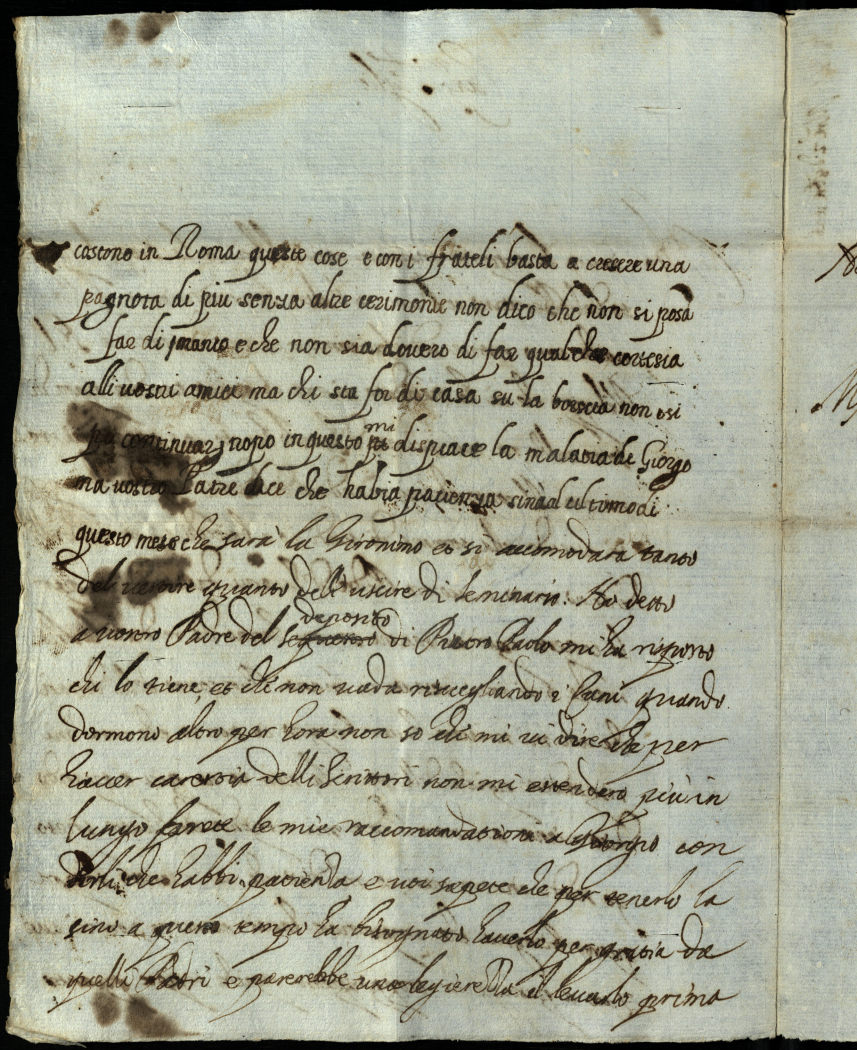 costono in Roma queste cose e con i frateli basta a cresere una
pagnota di piu senza altre cerimonie non dico che non si posa
far di manco e che non sia dovere di far qualche cortesia
alli vostri amici ma chi sta for di casa su la borscia non osi
continuar nopo in questo mi dispiace la malatia de Giorgo
ma vostro Patre dice che habia pacienza sin al ultimo di
questo mese che sarà la Gironimo et si acomodara tanto
del vestire quanto dell'uscire di seminario. Ho detto
a vostro Padre del deposito di Pietro Paolo mi ha risposto
chi lo tiene, et che non vada risvegliando i Cani quando
dormono altro per hora non so che mi vi dire che per
haver carestia delli scrittori non mi estendero più in
lungo farete le mie raccomandationi a Giorgio con
dirli che habbi patienza e voi sapete che per tenerlo la
sino a questo tempo ha bisognato haverlo per gratia da
quelli Padri e parerebbe una legierezza il levarlo prima